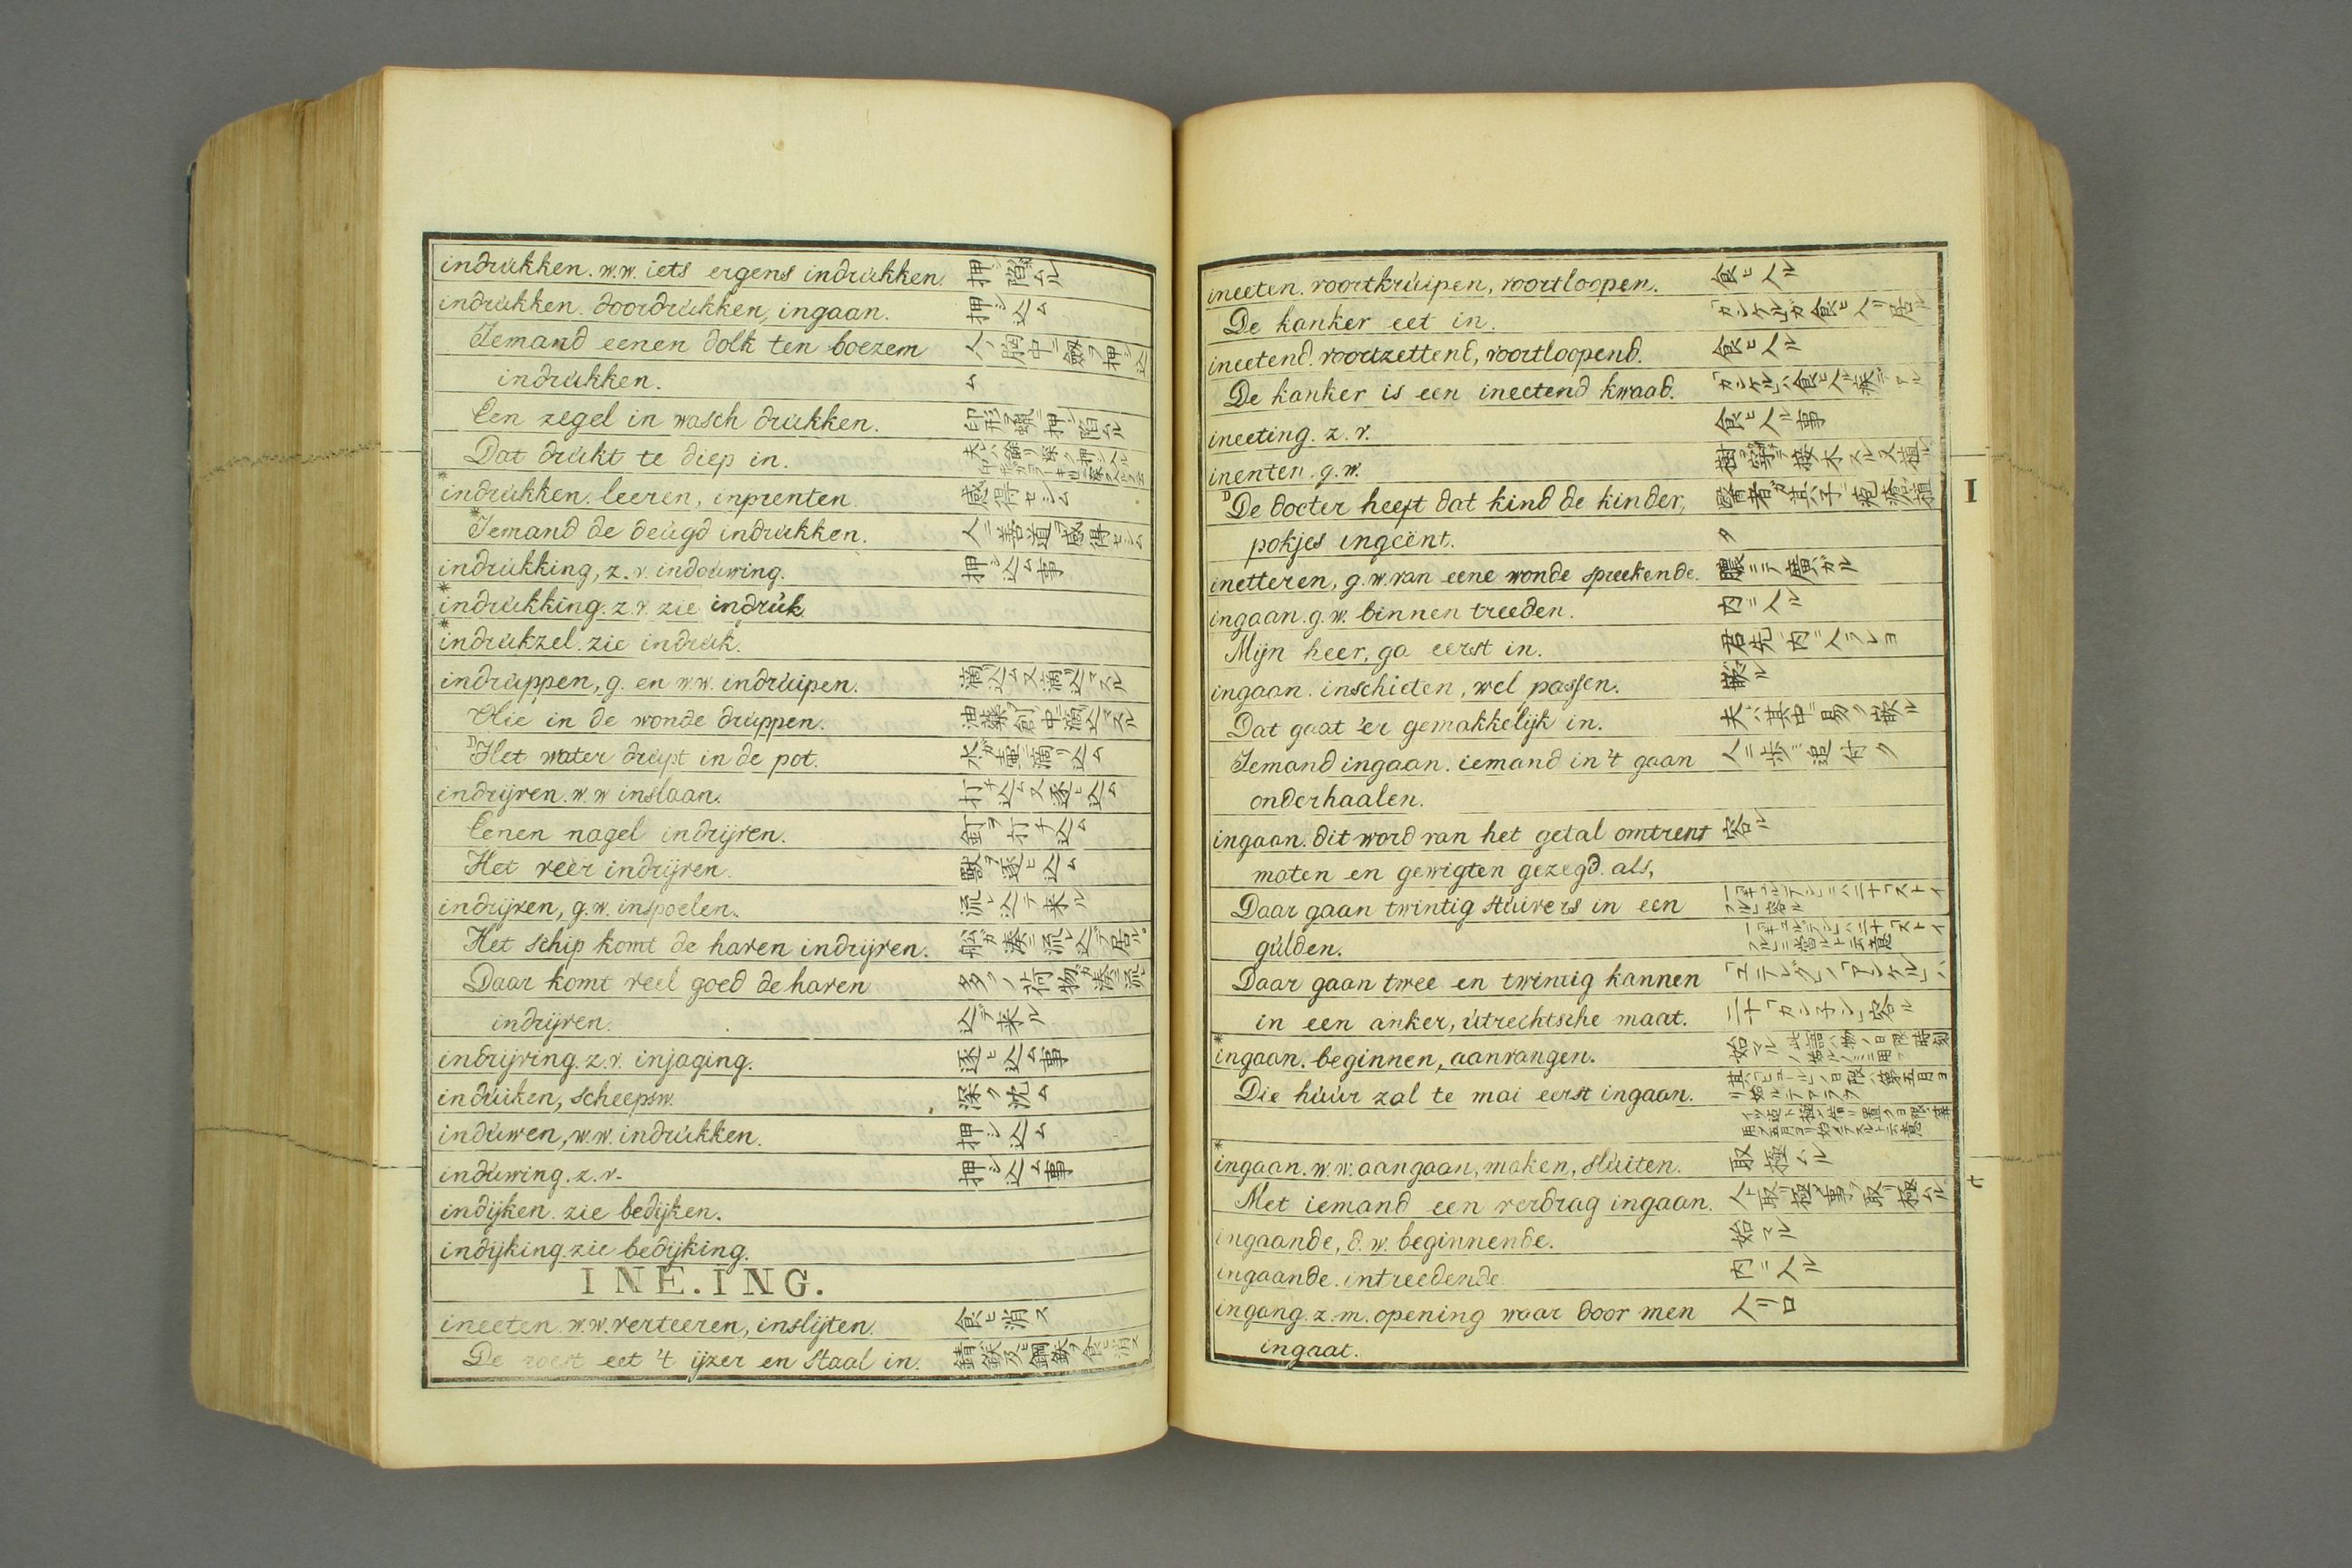 indrukken. w.w. iets ergens indrukken. 押シ陷ムル
indrukken. doordrukken, ingaan. 押シ込ム
Iemand eenen dolk ten boezem 人ノ胸中ニ劔ヲ押シ込
indrukken. ム
Een zegel in wasch drukken. 印形ヲ蝋ニ押シ陷ムル
Dat drukt te diep in. 夫ハ餘リ深ク押シ入ル
*indrukken. leeren, inprenten. 感得セシム
*Iemand de deugd indrukken. 人ニ善道ヲ感得セシム
indrukking, z.v. indouwing. 押シ込ム事
*indrukking. z.v. zie indruk.
*indrukzel. zie indruk.
indruppen, g. en w.w. indruipen. 滴込ム又滴込マスル
Olie in de wonde druppen. 油藥ヲ創中ニ滴込マスル
D Het water drupt in de pot. 水ガ壷ニ滴リ込ム
indrijven. w.w inslaan. 打チ込ム又逐ヒ込ム
Eenen nagel indrijven. 釘ヲ打チ込ム
Het veèr indrijven. 獸ヲ逐ヒ込ム
indrijven, g.w. inspoelen. 流レ込テ来ル
Het schip komt de haven indrijven. 舩ガ湊ニ流レ込デ居ル
Daar komt veel goed de haven 多クノ荷物ガ湊ニ流レ
indrijven. 込デ来ル
indrijving. z.v. injaging. 逐ヒ込ム事
induiken, scheepsw. 深ク沈ム
induwen, w.w. indrukken. 押シ込ム
induwing. z.v. 押シ込ム事
indijken. zie bedijken.
indijking. zie bedijking.
INE.ING.
ineeten. w.w. verteeren, inslijten. 食ヒ消ス
De roest eet 't ijzer en staal in. 錆ガ鉄及ヒ鋼鉄ヲ食ヒ消ス
ineeten. voortkruipen, voortloopen. 食ヒ入ル
De kanker eet in. 「カンケル」ガ食ヒ入リ居ル
ineetend. voortzettend, voortloopend. 食ヒ入ル
De kanker is een ineetend kwaad. 「カンケル」ハ食ヒ入ル疾デアル
ineeting. z.v. 食ヒ入ル事
inenten. g.w. 樹ヲ接木スル又植ル
D De docter heeft dat kind de kinder, 醫者ガ其子ニ疱瘡ヲ植
pokjes ingeënt. ク
inetteren, g.w. van eene wonde spreekende. 膿ニテ廣ガル
ingaan. g.w. binnen treeden. 内ニ入ル
Mijn heer, ga eerst in. 君先ニ内ニ入ラレヨ
ingaan. inschieten, wel passen. 嵌ル
Dat gaat 'er gemakkelijk in. 夫ハ其中ニ易ク嵌ル
Iemand ingaan. iemand in 't gaan 人ニ歩ニ追付ク
onderhaalen.
ingaan. dit word van het getal omtrent 容ル
maten en gewigten gezegd. als,
Daar gaan twintig stuivers in een
gulden.
Daar gaan twee en twintig kannen
in een anker, utrechtsche maat. 二十「カンネン」容ル
*ingaan. beginnen, aanvangen. 始マル
Die húúr zal te mai eerst ingaan.
*ingaan. w.w. aangaan, maken, sluiten. 取極ムル
Met iemand een verdrag ingaan. 人ト取リ極メ事ヲ取リ極ムル
ingaande, d.w. beginnende. 始マル
ingaande. intreedende. 内ニ入ル
ingang. z.m. opening waar door men 入リ口
ingaat.
I